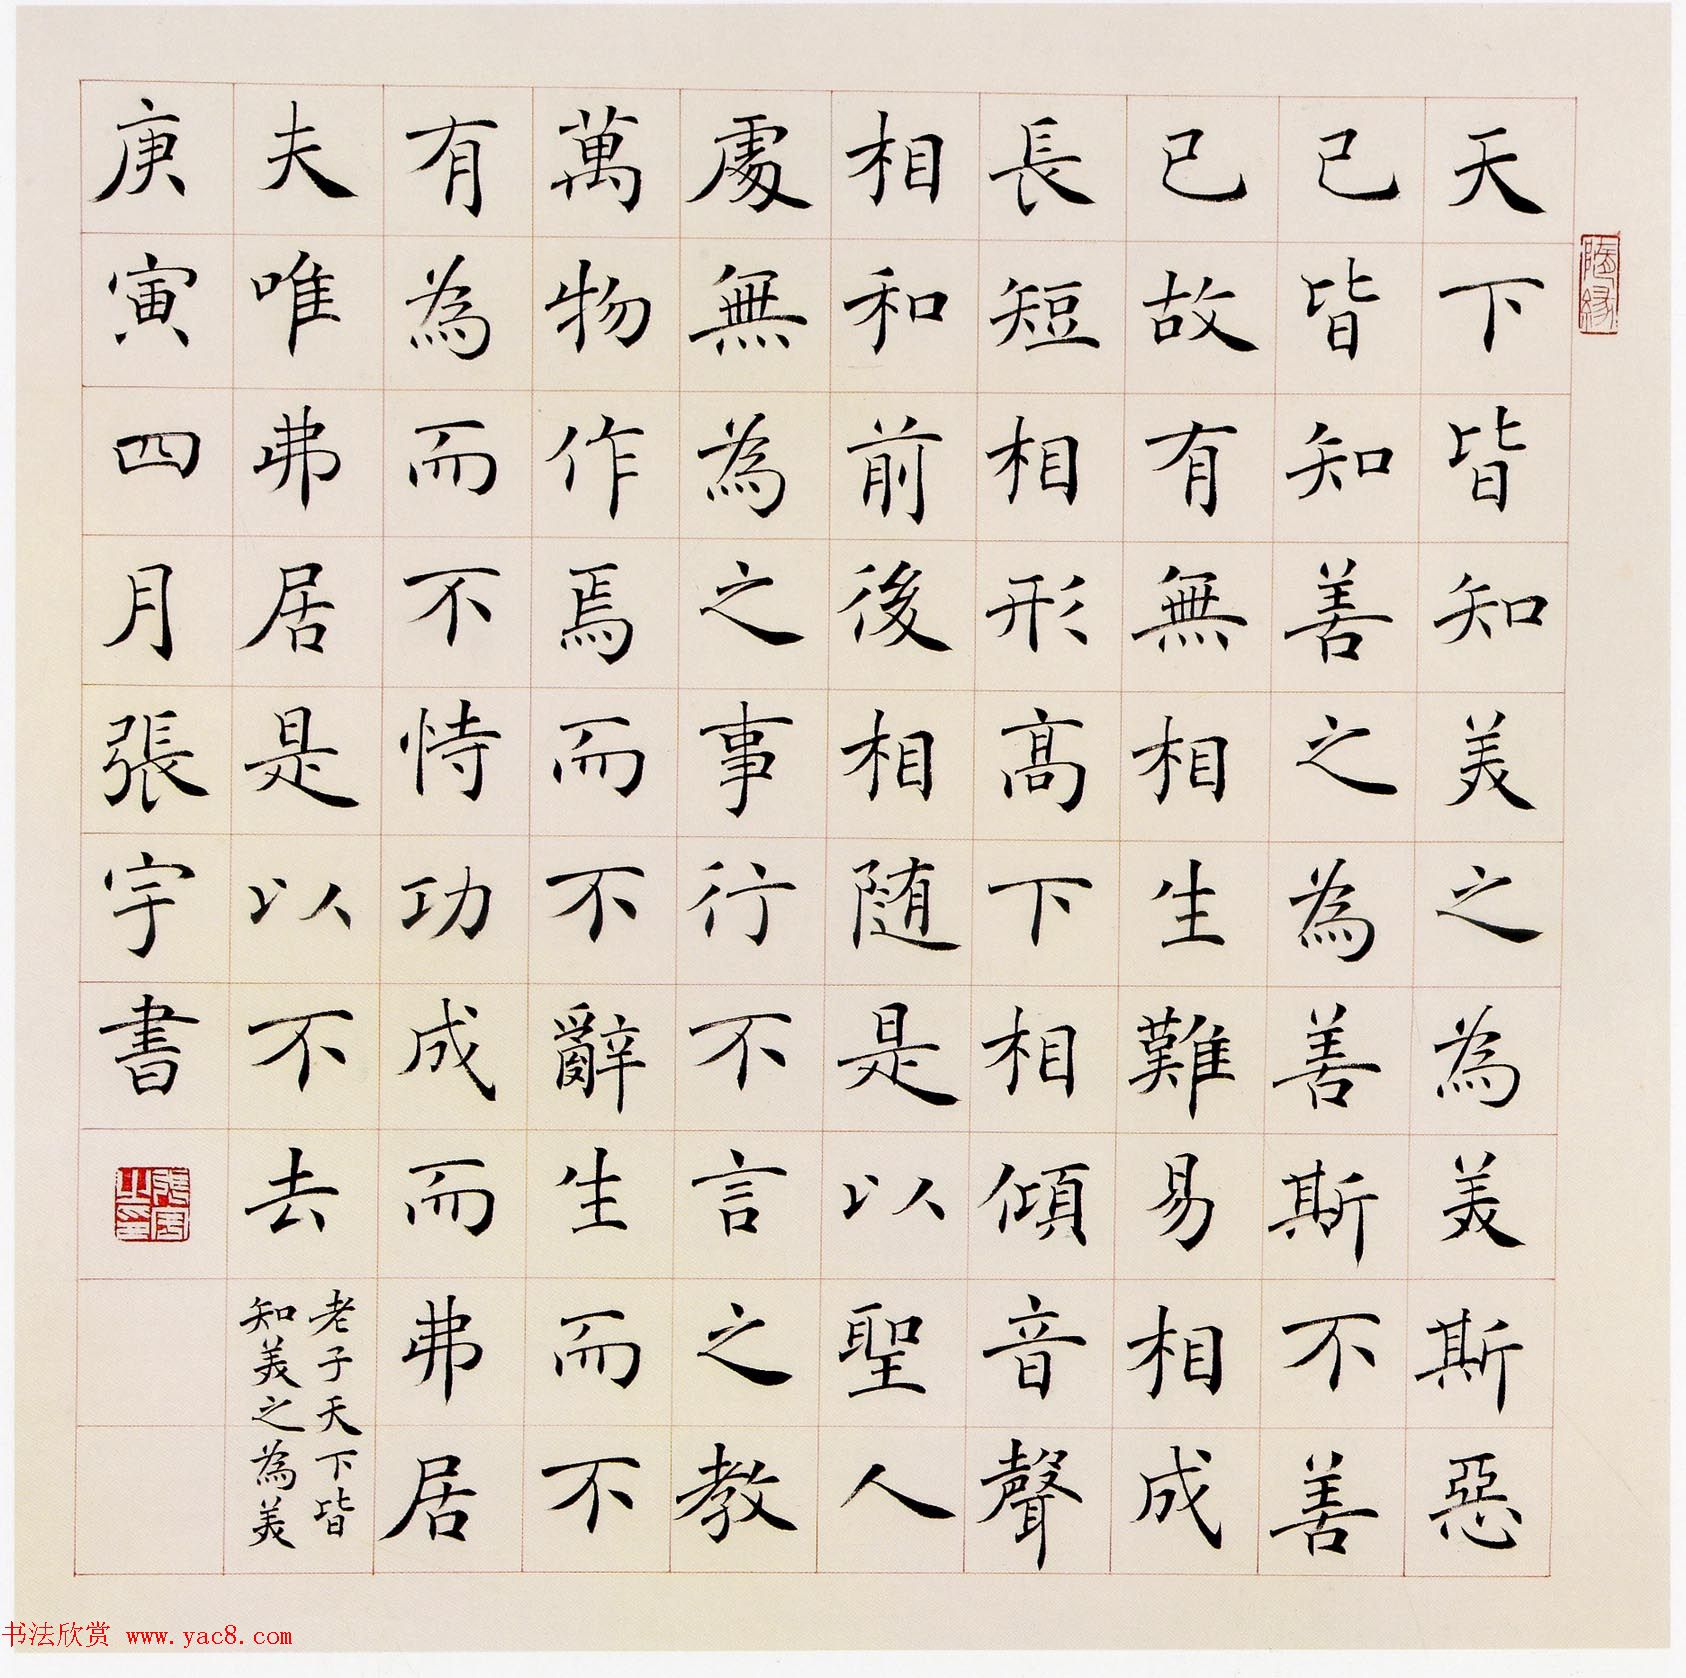 天下皆知美之為美斯惡
已皆知善之為善斯不善
已故有無相生難易相成
長短相形高下相傾音聲
相和前後相随是以聖人
處無為之事行不言之教
萬物作焉而不辭生而不
有為而不恃功成而弗居
夫唯弗居是以不去
老子天下皆
知美之為美
庚寅四月張宇書
书法欣赏 www.yac8.com